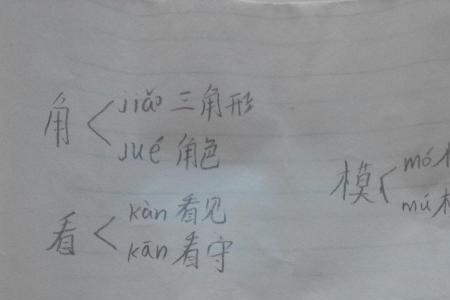 角 jiǎo 三角形
jué 角色
看 kàn 看见
kān 看守
模 mó
mú